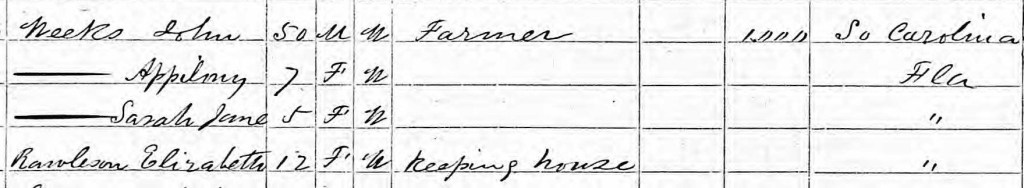 Weeks John 50 M W Farmer 1,000 So Carolina
Appilony 7 F W Fla
Sarah Jane 5 F W "
Rawleson Elizabeth 12 F W Keeping house "